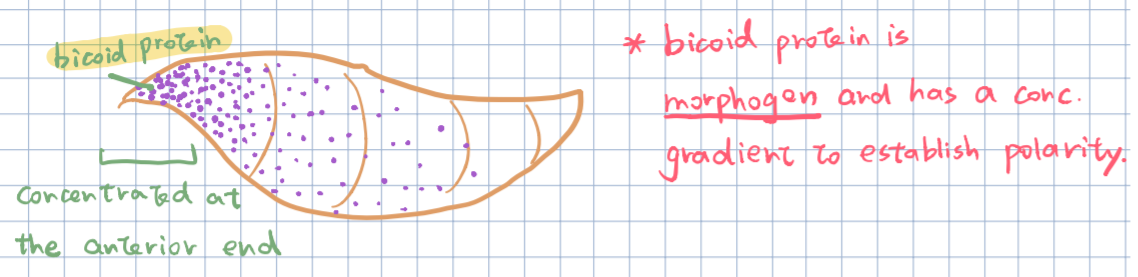 bicoid protein
concentrated at
the anterior end
* bicoid protein is
morphogen and has a conc.
gradient to establish polarity.